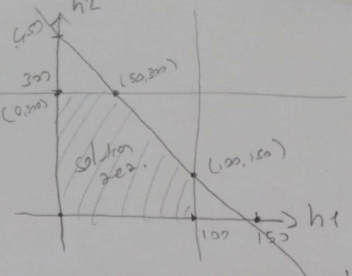 h2
450
300
(50,300)
(0,300)
solution
(100,150)
h1
100
150